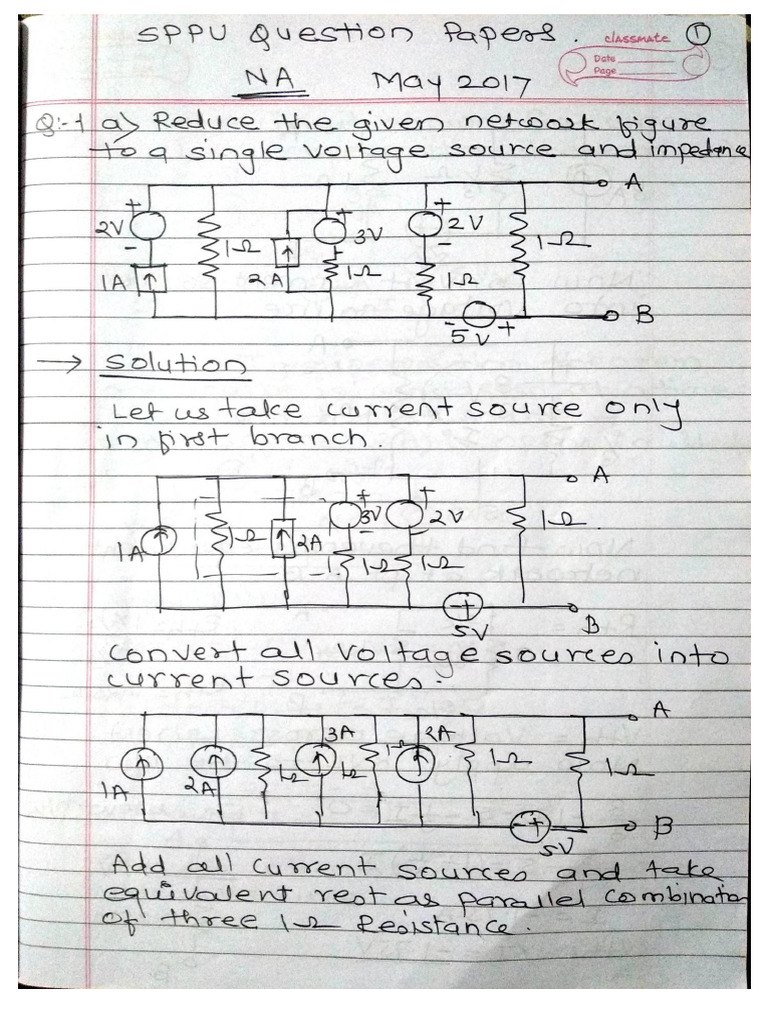 SPPU Question Papers. classmate 1
Date
Page
NA May 2017
Q:-1 a) Reduce the given network figure
to a single voltage source and impedance
A
+ 2V - 1Ω + 3V + 2V 1Ω
1A 2A 1Ω 1Ω
- 5V + B
→ Solution
Let us take current source only
in first branch.
A
1A 1Ω 2A + 3V - + 2V - 1Ω
1Ω 1Ω
- + 5V B
Convert all voltage sources into
current sources.
A
3A 2A
1A 2A 1Ω 1Ω 1Ω 1Ω 1Ω
- + 5V B
Add all current sources and take
equivalent rest as parallel combination
of three 1Ω Resistance.